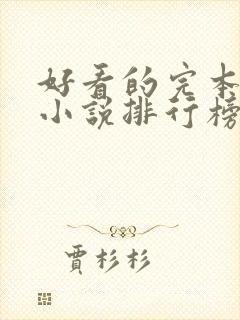 好看的完本
小說排行榜
賈杉杉